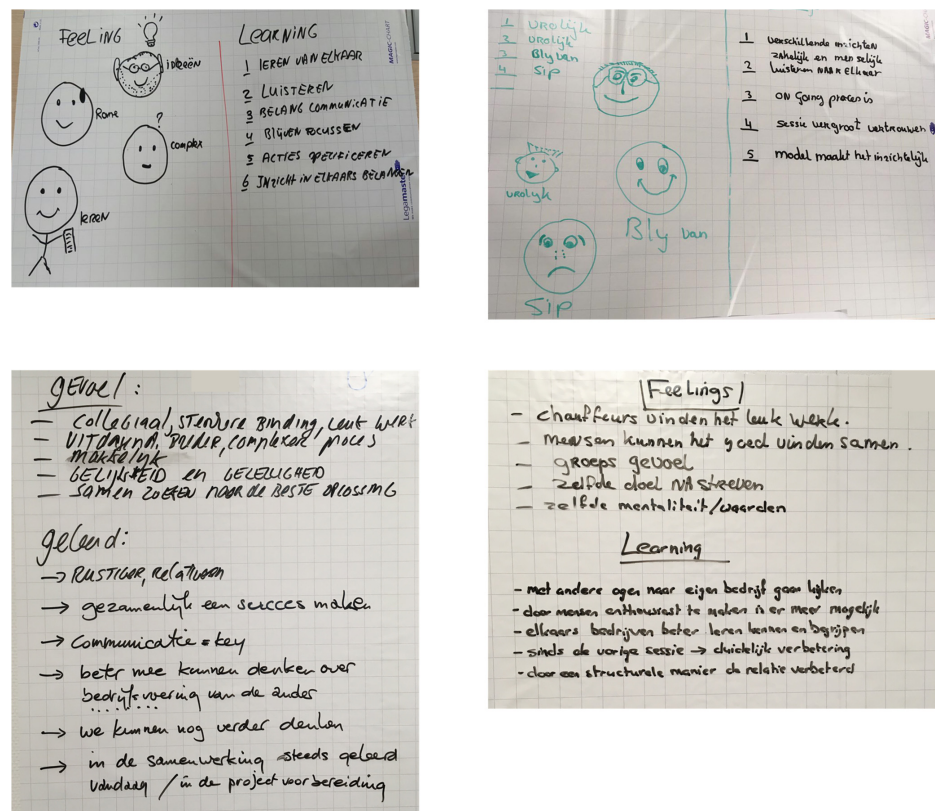 FEELING
ideeën
Rome
?
complex
leren
LEARNING
1 LEREN VAN ELKAAR
2 LUISTEREN
3 BELANG COMMUNICATIE
4 BLIJVEN FOCUSSEN
5 ACTIES SPECIFICEREN
6 INZICHT IN ELKAARS BELANGEN
MAGIC-CHART
Legamaster
1 VROLIJK
3 VROLIJK
3 Bly van
4 Sip
VROLYK
Bly van
Sip
1 verschillende inzichten
zakelijk en menselijk
2 luisteren NAAR elkaar
3 ON Going proces is
4 sessie vergroot vertrouwen
5 model maakt het inzichtelijk
MAGIC-CHART
gevoel:
— collegiaal, sterkere Binding, leuk werk
— UITDAGEND, complexer proces
— makkelijk
— GELIJKHEID en
— samen zoeken naar de BESTE OPLOSSING
geleerd:
→ RUSTIGER, relativeren
→ gezamenlijk een succes maken
→ Communicatie = key
→ beter mee kunnen denken over
bedrijfsvoering van de ander
→ we kunnen nog verder denken
→ in de samenwerking steeds geleerd
vandaag / in de project voorbereiding
Feelings
- chauffeurs vinden het leuk werk.
- mensen kunnen het goed vinden samen.
- groeps gevoel
- zelfde doel NA streven
- zelfde mentaliteit/waarden
Learning
- met andere ogen naar eigen bedrijf gaan kijken
- door mensen enthousiast te maken is er meer mogelijk
- elkaars bedrijven beter leren kennen en begrijpen
- sinds de vorige sessie → duidelijk verbetering
- door een structurele manier de relatie verbeterd